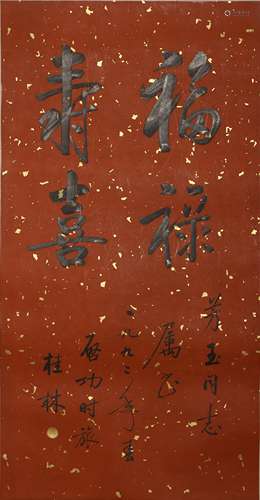 福祿
壽喜
芳玉同志
属正
一九九二年夏
启功时旅
桂林